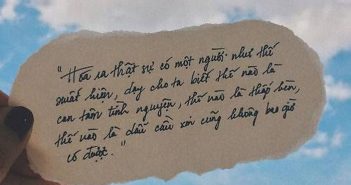 "Hóa ra thật sự có một người như thế
xuất hiện, dạy cho ta biết thế nào là
cam tâm tình nguyện, thế nào là thấp hèn,
thế nào là dẫu cầu xin cũng không bao giờ
có được."